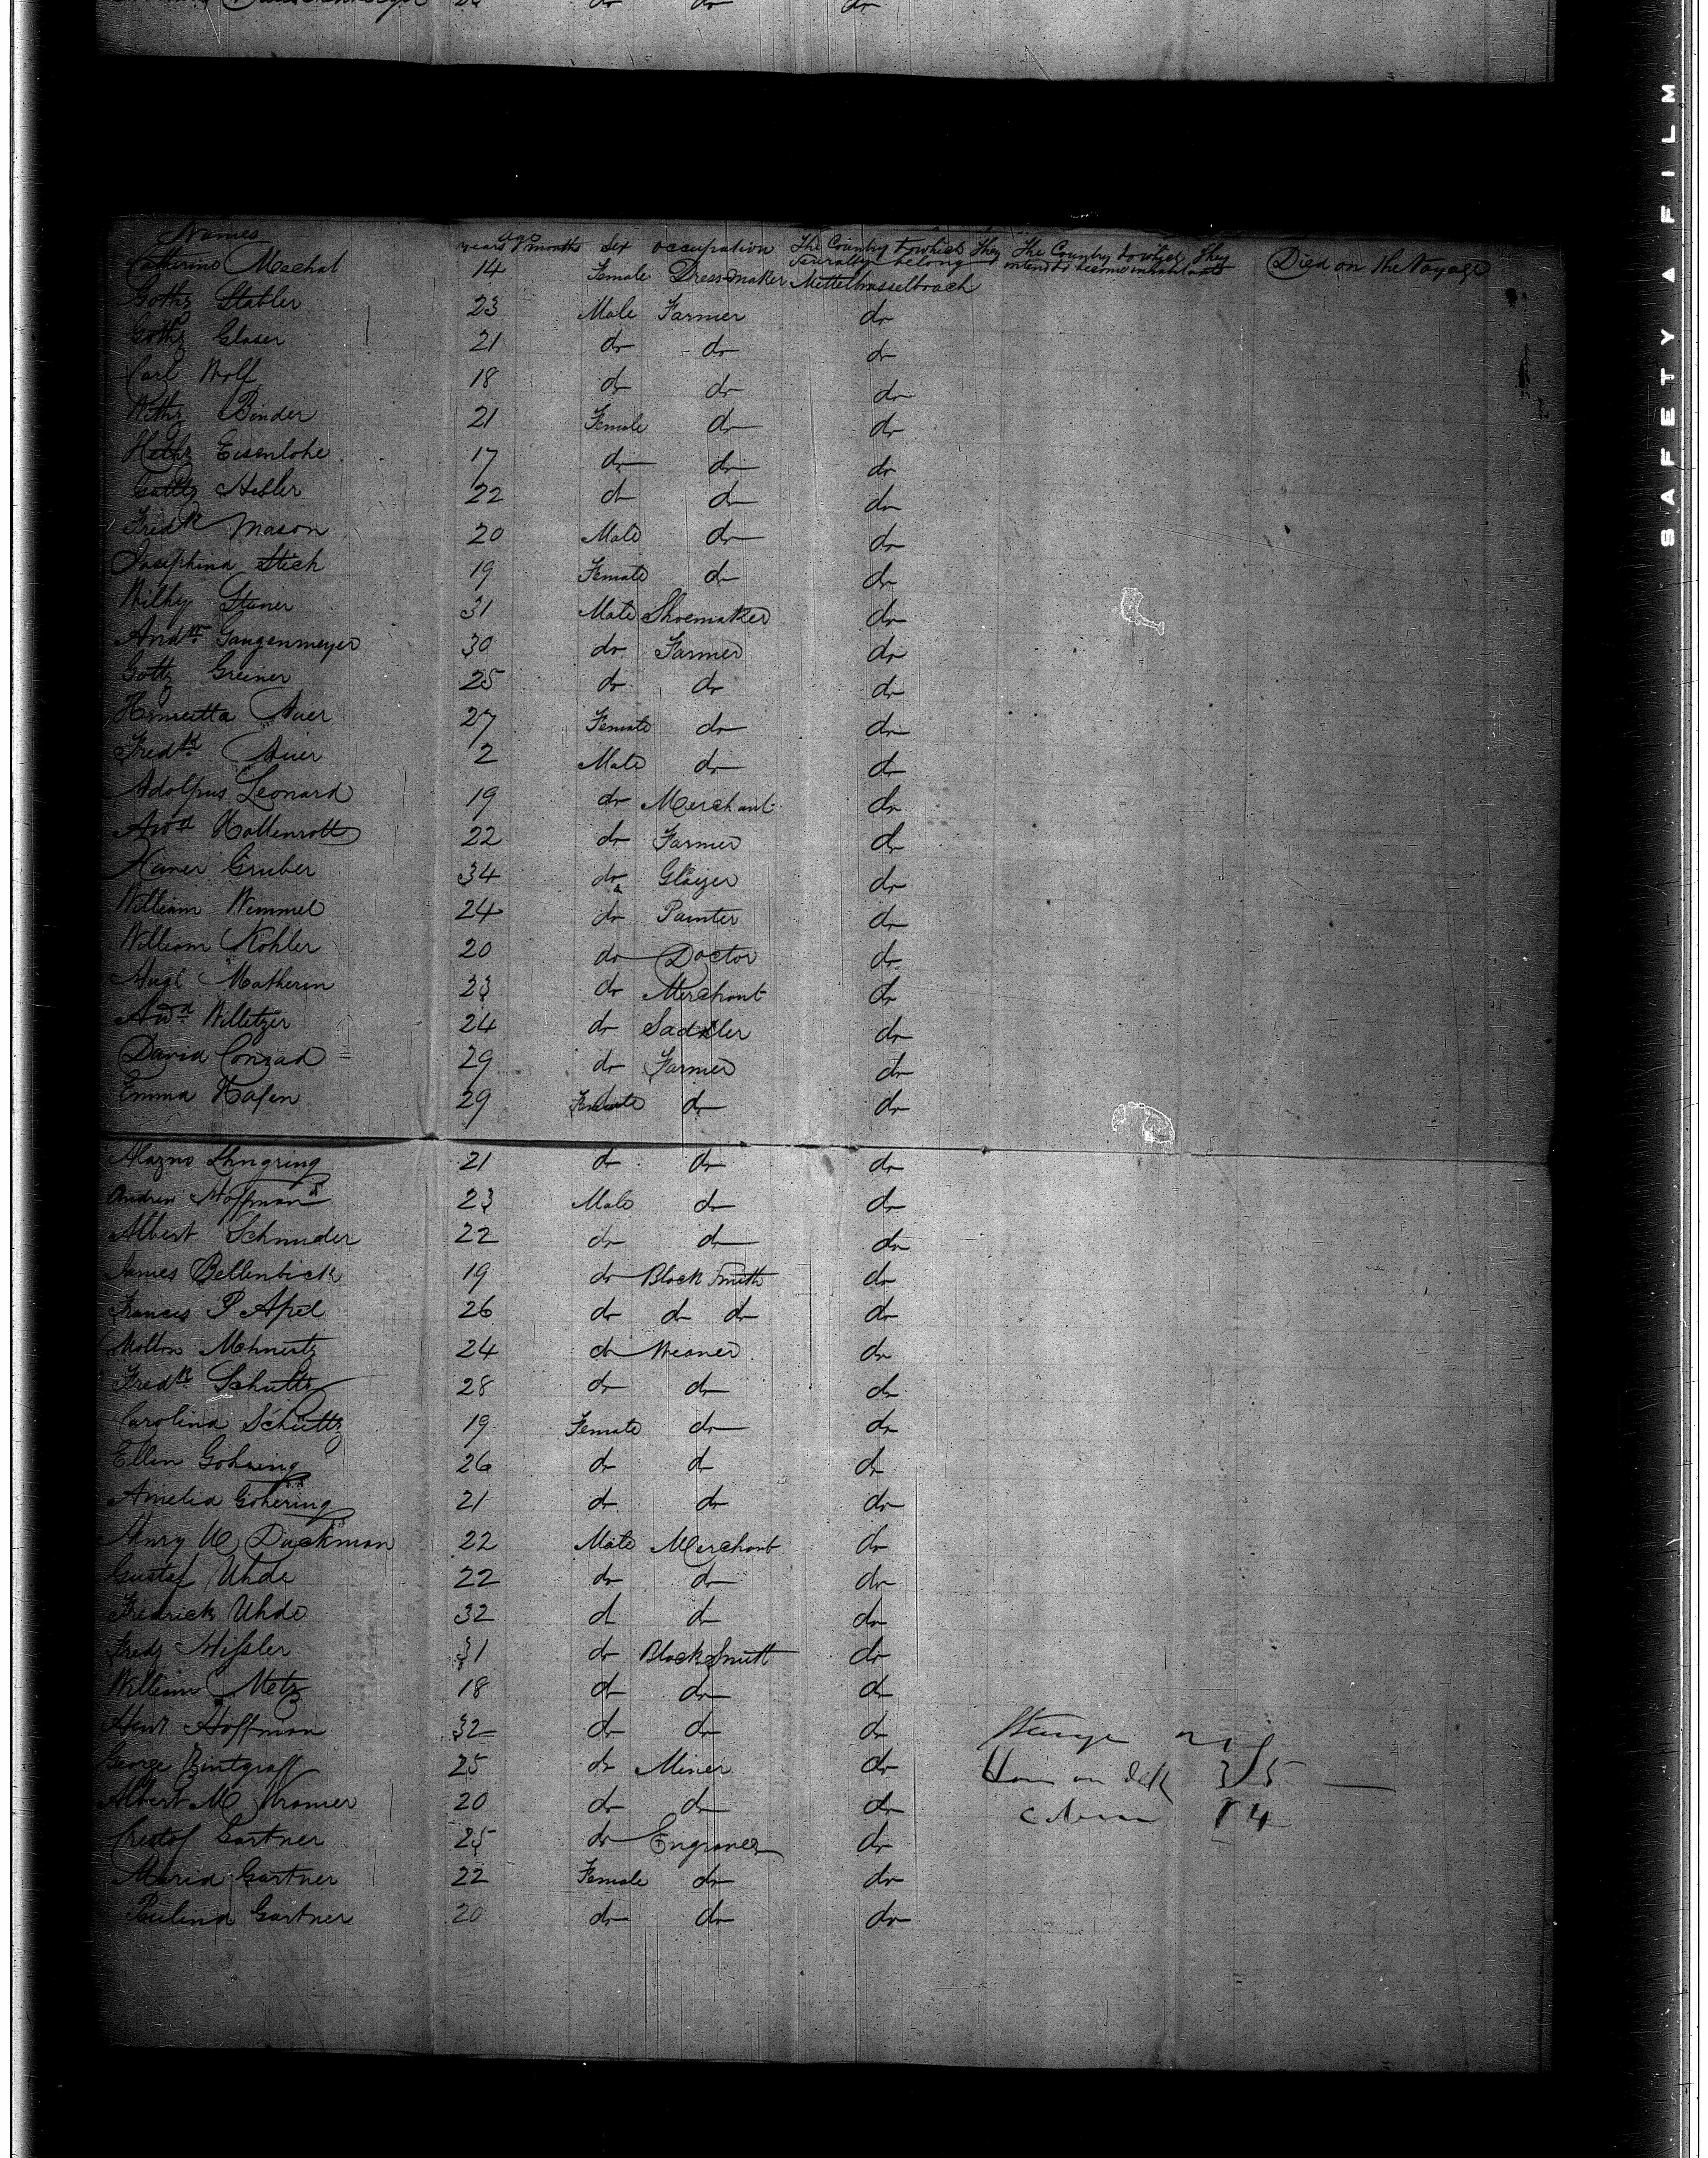 26 do do do
Names age years months Sex occupation The Country to which They severally belong The Country to which They intend to become inhabitants Died on the Voyage
Catherine Mechal 14 Female Dressmaker Mettelbrasselbrach
Gothz Stabler 23 Male Farmer do
Gothz Glaser 21 do do do
Carl Wolf 18 do do do
Withz Binder 21 Female do do
Hethz Eisenlohe 17 do do do
Hebler 22 do do do
Fredk Mason 20 Male do do
Josephina Stich 19 Female do do
Wilhy Staner 31 Male Shoemaker do
Andw Gangenmeyer 30 do Farmer do
Gottz Greiner 25 do do do
Henrietta Auer 27 Female do do
Fredk Auer 2 Male do do
Adolphus Leonard 19 do Merchant do
Awd Hollenrott 22 do Farmer do
Xaner Gruber 34 do Glazer do
William Wemmel 24 do Painter do
William Kohler 20 do Doctor do
Augt Matherin 23 do Merchant do
Awd Willetzer 24 do Saddler do
David Conzad 29 do Farmer do
Emma Hafen 29 Female do do
Mazno Lhngring 21 do do do
Andrew Hoffman 23 Male do do
Albert Schnuder 22 do do do
James Bellenbick 19 do Black Smith do
Francis P Apel 26 do do do do
Molton Mehnertz 24 do Weaver do
Fredk Schultz 28 do do do
Carolina Schultz 19 Female do do
Ellen Gohring 26 do do do
Amelia Gohering 21 do do do
Henry W Duckman 22 Male Merchant do
Gustaf Uhde 22 do do do
Fredrick Uhde 32 do do do
Fredz Hissler 31 do Blacksmith do
William Metz 18 do do do
Henr Hoffman 32 do do do
George Bintgraff 25 do Miner do
Albert M Kromer 20 do do do
Cristof Gartner 25 do Engraver do
Maria Gartner 22 Female do do
Paulina Gartner 20 do do do
SAFETY A FILM